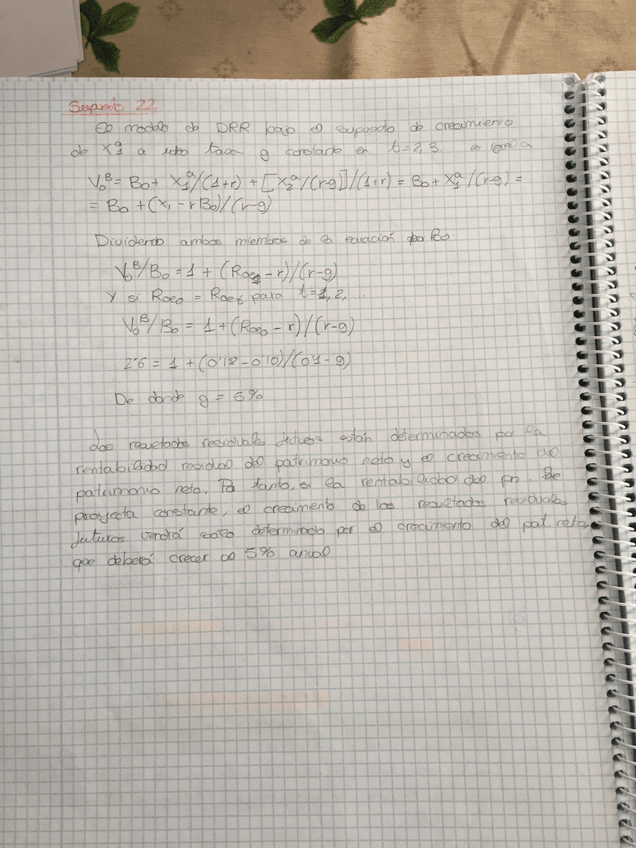 Supuesto 22
El modelo de DRR bajo el supuesto de crecimiento
de X₁ᵃ a una tasa g constante en t=2,3
V₀ᴮ = B₀ + X₁ᵃ/(1+r) + [X₂ᵃ/(r-g)]/(1+r) = B₀ + X₁ᵃ/(r-g) =
= B₀ + (X₁ - rB₀)/(r-g)
Dividiendo ambos miembros de la ecuación por B₀
V₀ᴮ/B₀ = 1 + (Roe₁ - r)/(r-g)
Y si Roe₀ = Roeₜ para t=1,2,...
V₀ᴮ/B₀ = 1 + (Roe₀ - r)/(r-g)
2'6 = 1 + (0'18 - 0'10)/(0'1 - g)
De donde g = 5%
Los resultados residuales futuros están determinados por la
rentabilidad residual del patrimonio neto y el crecimiento del
patrimonio neto. Por tanto, si la rentabilidad del pn. se
proyecta constante, el crecimiento de los resultados residuales
futuros vendrá sólo determinado por el crecimiento del pat. neto
que deberá crecer al 5% anual